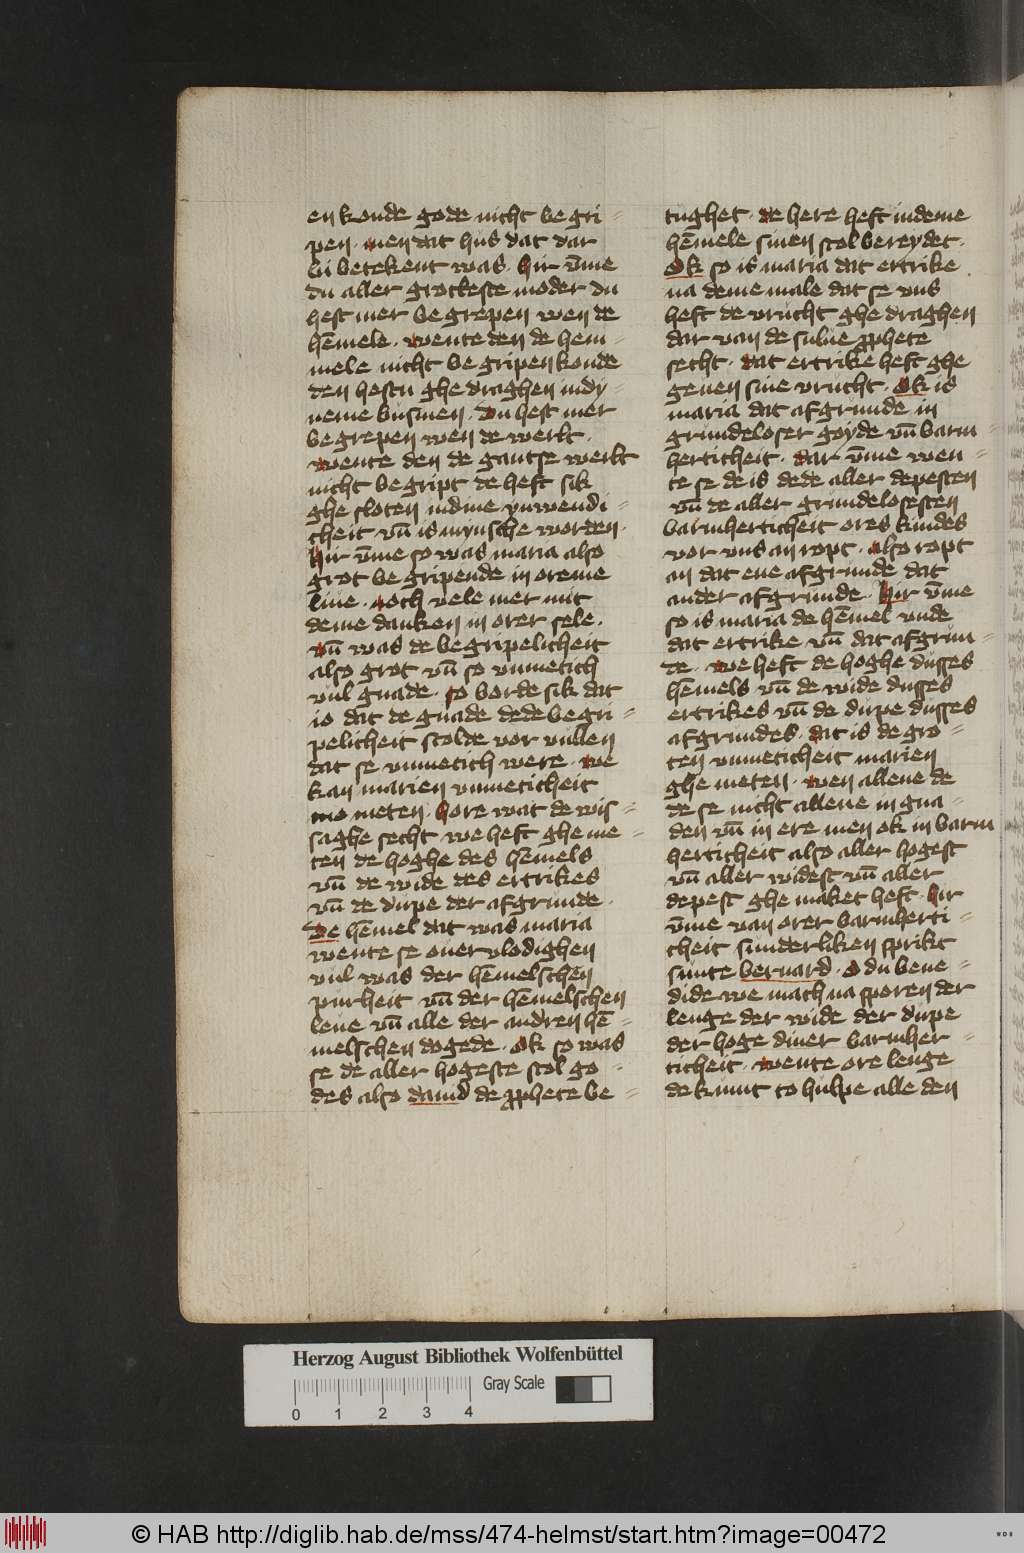 en konde gode nicht be gri-
pen. men dat hus dat dar
bi betekent was. hir v̄me
du aller groteste moder du
hest mer be grepen wen de
hēmele. wente den de hem-
mele nicht be gripen konde
den hestu ghe draghen in dy-
neme businen. Du hest mer
be grepen wen de werlt.
wente den de gantse werlt
nicht be gript de heft sik
ghe sloten in dine ynwendi-
cheit vn̄ is mynsche worden.
hir v̄me so was maria also
grot be gripende in oreme
liue. noch vele mer mit
deme danken in orer sele.
vn̄ was de be gripelicheit
also grot vn̄ so vnmetich
vul gnade. so borde sik dat
io dat de gnade dede be gri-
pelicheit scolde vor vullen
dat se vnmetich were. we
kan marien vnmeticheit
mo meten. hore wat de wis-
saghe secht we heft ghe me-
ten de hoghe des hēmels
vn̄ de wide des ertrikes
vn̄ de dupe der afgrunde.
De hēmel dat was maria
wente se ouer vlodighen
vul was der hēmelschen
purheit vn̄ der hēmelschen
leue vn̄ alle der andren hē-
melschen dogede. Ok so was
se de aller hogeste stol go-
des also dauid de pphete be-
tughet. de here heft in deme
hēmele sinen stol bereydet.
Ok so is maria dat ertrike
na deme male dat se vns
heft de vrucht ghe draghen
dar van de sulue pphete
secht. dat ertrike heft ghe
geuen sine vrucht. Ok is
maria dat afgrunde in
grundeloser goyde vn̄ barm-
herticheit. dar v̄me wen-
te se de is dede aller depesten
vn̄ de aller grundelosesten
barmherticheit ores kindes
vor vns an ropt. also ropt
an dat ene afgrunde dat
ander afgrunde. hir v̄me
so is maria de hēmel vnde
dat ertrike vn̄ dat afgrun-
de. we heft de hoghe dusses
hēmels vn̄ de wide dusses
ertrikes vn̄ de dupe dusses
afgrundes. dat is de gro-
ten vnmeticheit marien
ghe meten. wen allene de
de se nicht allene in gna-
den vn̄ in ere men ok in barm
herticheit also aller hogest
vn̄ aller widest vn̄ aller
depest ghe maket heft. hir
v̄me van orer barmherti-
cheit sunderliken sprikt
sunte bernard. O du bene-
dide we mach na sporen der
lenge der wide der dupe
der hoge diner barmher-
ticheit. wente ore lenge
de kumt to hulpe alle den
Herzog August Bibliothek Wolfenbüttel
Gray Scale
0 1 2 3 4
© HAB http://diglib.hab.de/mss/474-helmst/start.htm?image=00472